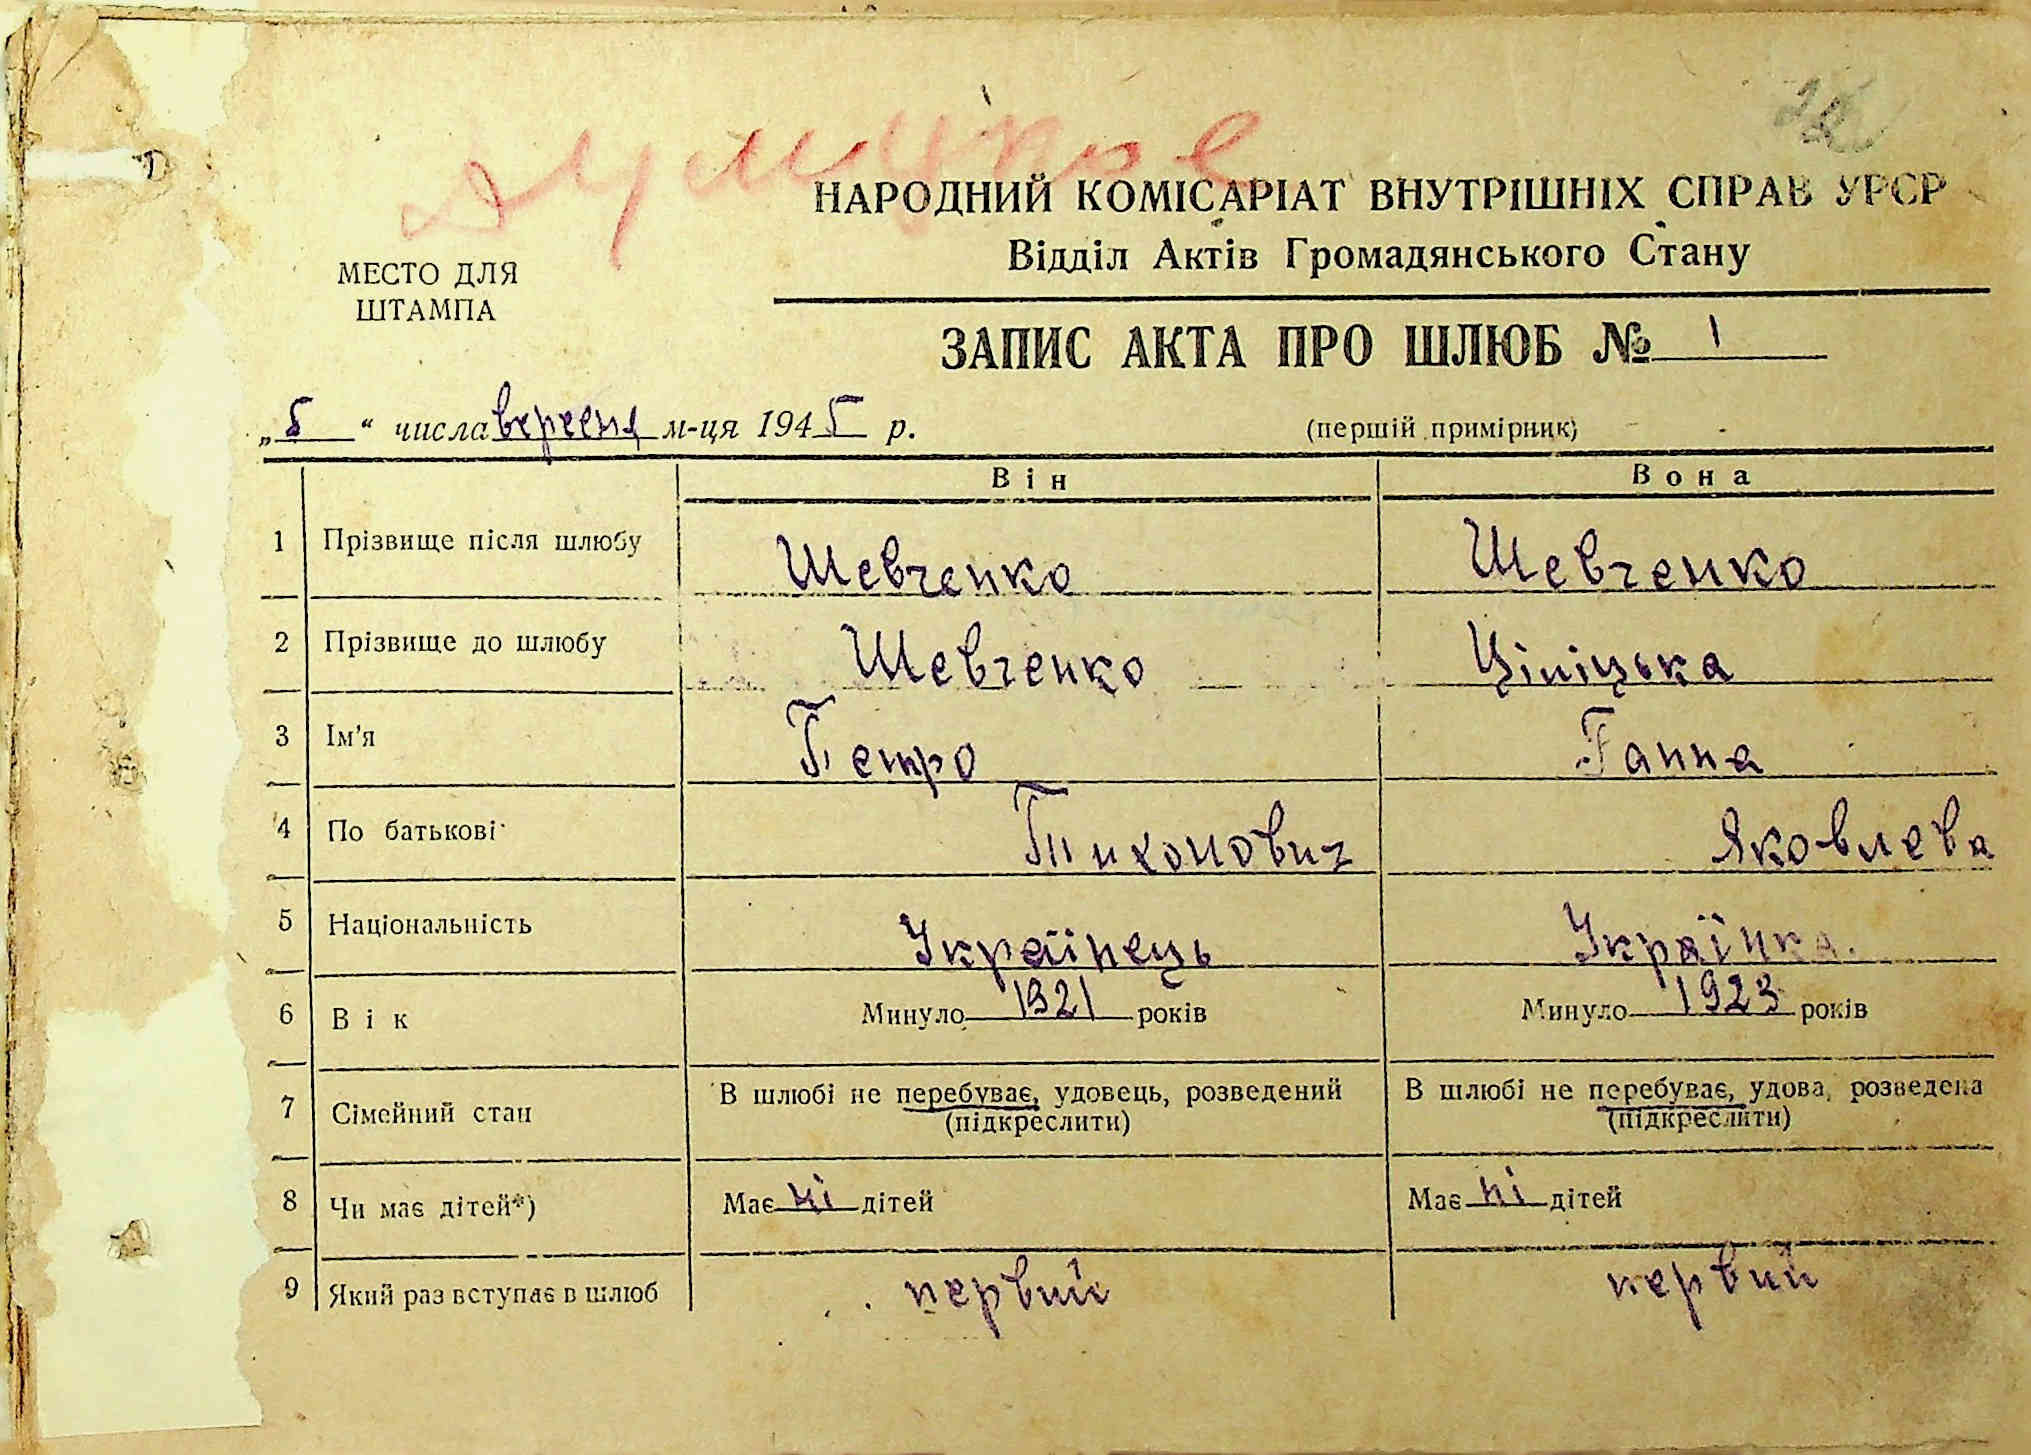 НАРОДНИЙ КОМІСАРІАТ ВНУТРІШНІХ СПРАВ УРСР
Відділ Актів Громадянського Стану
МЕСТО ДЛЯ
ШТАМПА
ЗАПИС АКТА ПРО ШЛЮБ № 1
„5“ числа вересня м-ця 1945 р. (першій примірник)
Він Вона
1 Прізвище після шлюбу Шевченко Шевченко
2 Прізвище до шлюбу Шевченко Ціпіцька
3 Ім'я Петро Ганна
4 По батькові Тихонович Яковлева
5 Національність Українець Українка.
6 Вік Минуло 1921 років Минуло 1923 років
7 Сімейний стан В шлюбі не перебуває, удовець, розведений В шлюбі не перебуває, удова, розведена
(підкреслити) (підкреслити)
8 Чи має дітей*) Має ні дітей Має ні дітей
9 Який раз вступає в шлюб первий первий